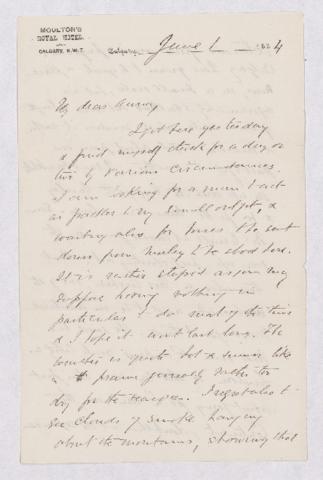 MOULTON'S
ROYAL HOTEL
CALGARY, N.W.T.
Calgary, June 1 1884
My dear Aunty,
I got here yesterday
& find myself stuck for a day or
two by various circumstances.
I am looking for a man to act
as packer to my small outfit, &
waiting also for horses to be sent
down from Morley & to be shod here.
It is rather stupid as you may
suppose having nothing in
particular to do most of the time
& I hope it wont last long. The
weather is quite hot & summer like
& the prairie generally rather too
dry for the season. I regret also to
see clouds of smoke hanging
about the mountains, showing that